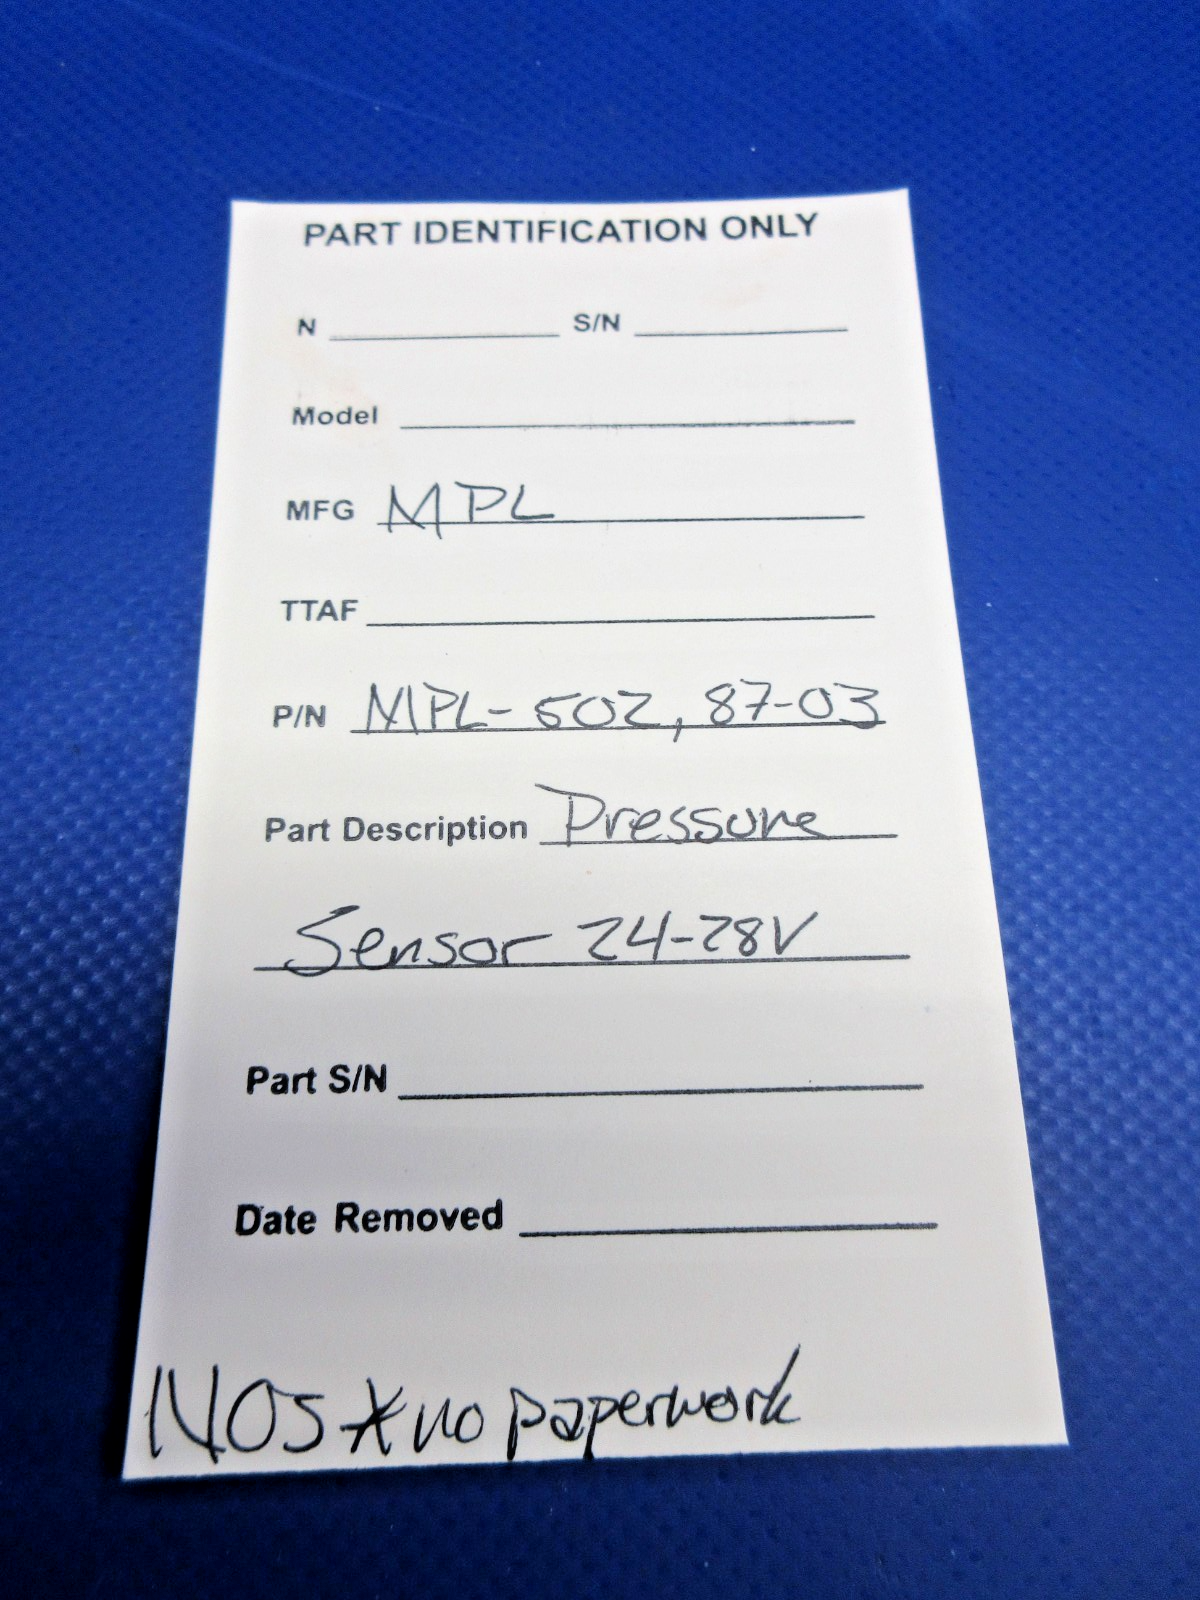 PART IDENTIFICATION ONLY
N S/N
Model
MFG MPL
TTAF
P/N MPL-502, 87-03
Part Description Pressure
Sensor 24-28V
Part S/N
Date Removed
NOS * no paperwork